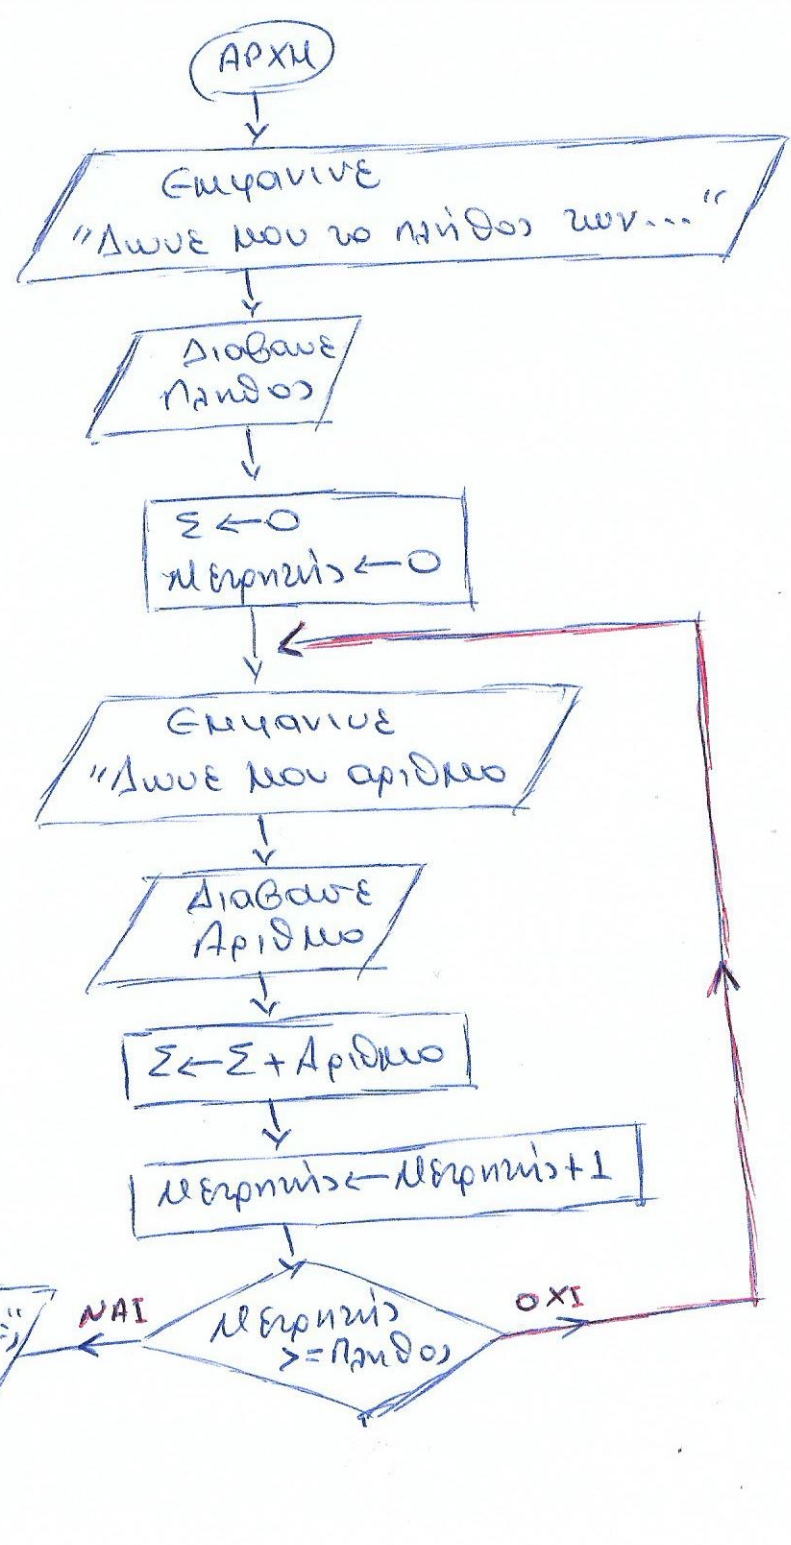 ΑΡΧΗ
Εμφανισε
"Δωσε μου το πλήθος των..."
Διαβασε
Πληθος
Σ ← 0
Μετρητής ← 0
Εμφανισε
"Δωσε μου αριθμο
Διαβασε
Αριθμο
Σ ← Σ + Αριθμο
Μετρητής ← Μετρητής + 1
ΝΑΙ
Μετρητής
>= Πληθος
ΟΧΙ